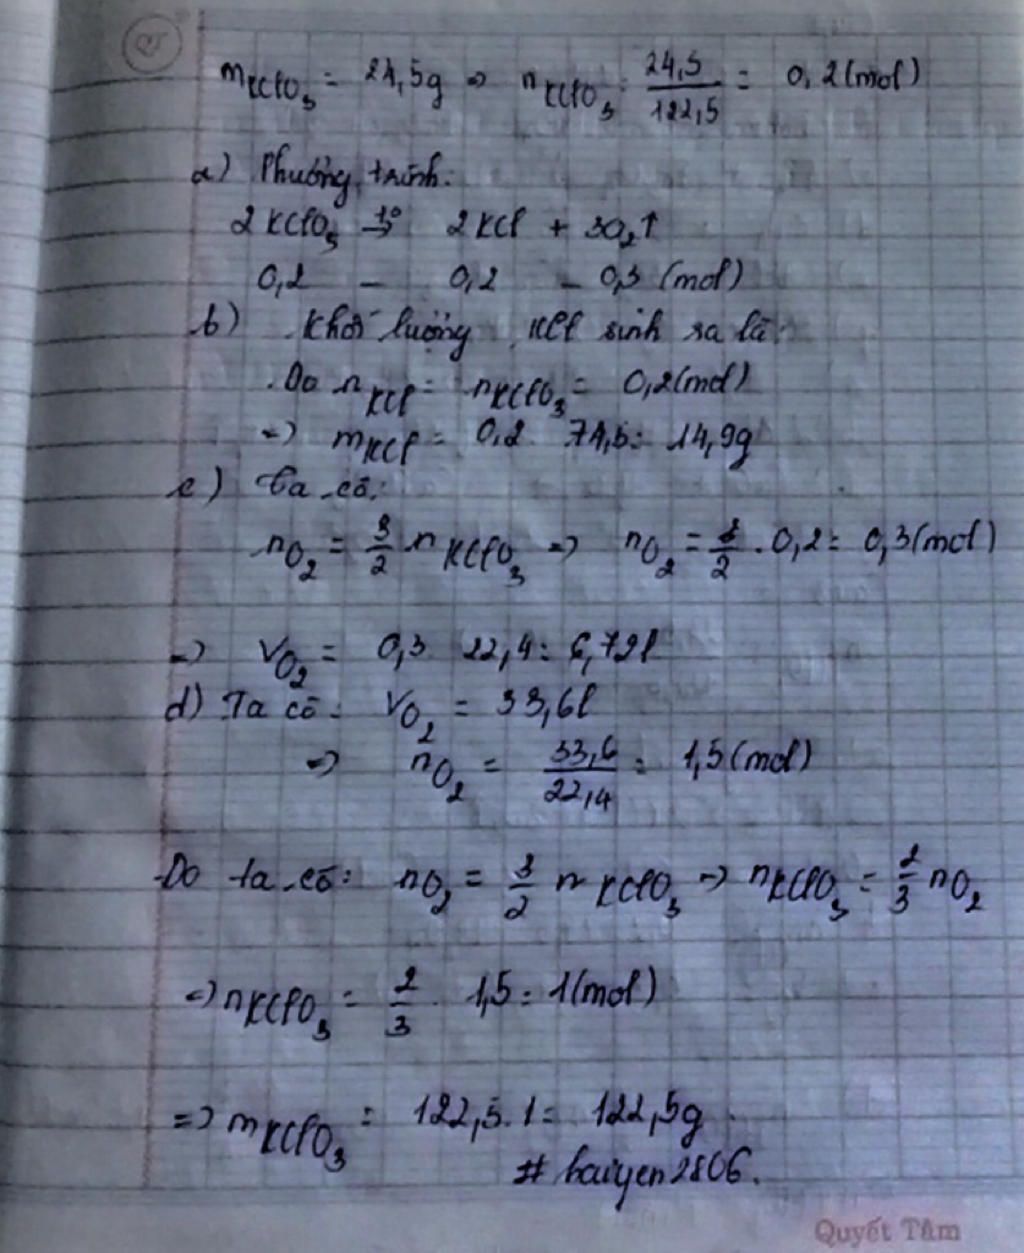 m_KClO₃ = 24,5g => n_KClO₃ = 24,5/122,5 = 0,2(mol)
a) Phương trình:
2KClO₃ t°→ 2KCl + 3O₂↑
0,2 - 0,2 - 0,3 (mol)
b) Khối lượng KCl sinh ra là:
Do n_KCl = n_KClO₃ = 0,2(mol)
=> m_KCl = 0,2 . 74,5 = 14,9g
c) Ta có:
n_O₂ = 3/2 n_KClO₃ => n_O₂ = 3/2 . 0,2 = 0,3(mol)
=> V_O₂ = 0,3 . 22,4 = 6,72l
d) Ta có: V_O₂ = 33,6l
=> n_O₂ = 33,6/22,4 = 1,5(mol)
Do ta có: n_O₂ = 3/2 n_KClO₃ => n_KClO₃ = 2/3 n_O₂
=> n_KClO₃ = 2/3 . 1,5 = 1(mol)
=> m_KClO₃ = 122,5.1 = 122,5g
# haiyen2806.
Quyết Tâm